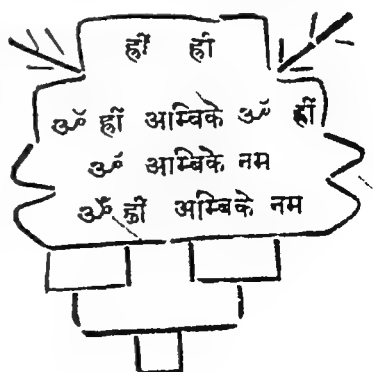 ह्रीं ह्रीं
ॐ ह्रीं अम्बिके ॐ ह्रीं
ॐ अम्बिके नम
ॐ ह्रीं अम्बिके नम